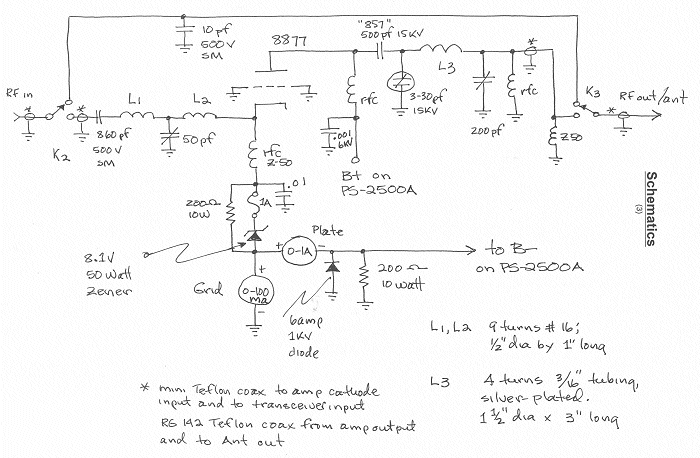 10 pf
500 V
SM
8877
"857"
500 pf 15KV
L3
RF in
*
*
L1
L2
K2
860 pf
500 V
SM
50 pf
rfc
3-30 pf
15KV
200 pf
rfc
*
K3
RF out/ant
*
Z50
.001
6KV
rfc
Z-50
B+ on
PS-2500A
200Ω
10W
1A
.01
Schematics
(3)
8.1V
50 Watt
Zener
Plate
+
0-1A
-
to B-
on PS-2500A
Grid
+
0-100
ma
-
200 Ω
10 watt
6amp
1KV
diode
L1, L2 9 turns # 16;
1/2" dia by 1" long
L3 4 turns 3/16" tubing,
silver-plated.
1 1/2" dia x 3" long
* mini Teflon coax to amp cathode
input and to transceiver input
RG 142 Teflon coax from amp output
and to Ant out